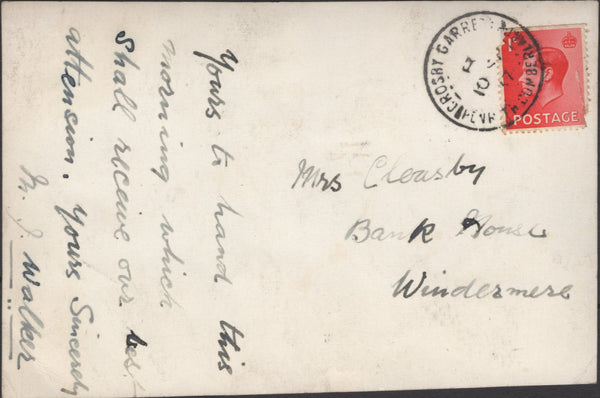 Yours to hand this
morning which
Shall receive our best
attension. Yours Sincerely
M. J. Walker
Mrs Cleasby
Bank House
Windermere
CROSBY GARRETT
WESTMORLAND
10
37
1D
POSTAGE